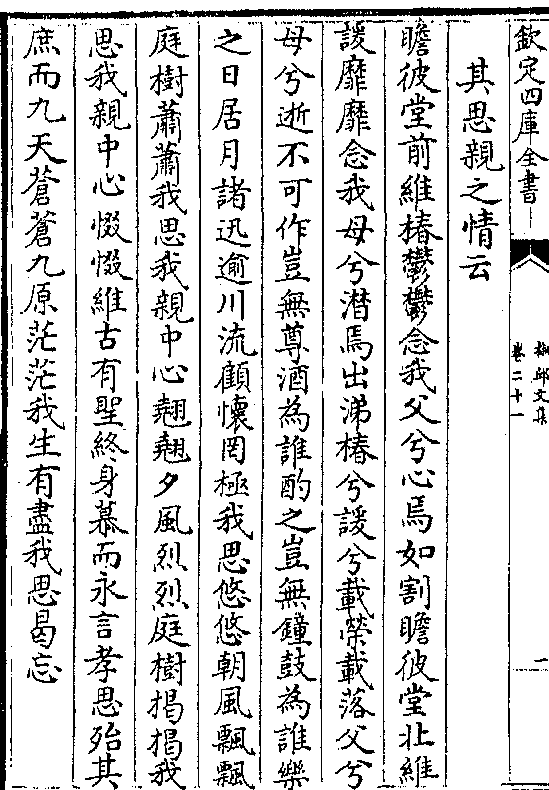 欽定四庫全書
柳邨文集
卷二十一
一
其思親之情云
瞻彼堂前維椿鬱鬱念我父兮心焉如割瞻彼堂北維
諼靡靡念我母兮潸焉出涕椿兮諼兮載榮載落父兮
母兮逝不可作豈無尊酒為誰酌之豈無鐘鼓為誰樂
之日居月諸迅逾川流顧懷罔極我思悠悠朝風飄飄
庭樹蕭蕭我思我親中心翹翹夕風烈烈庭樹揭揭我
思我親中心惙惙維古有聖終身慕而永言孝思殆其
庶而九天蒼蒼九原茫茫我生有盡我思曷忘